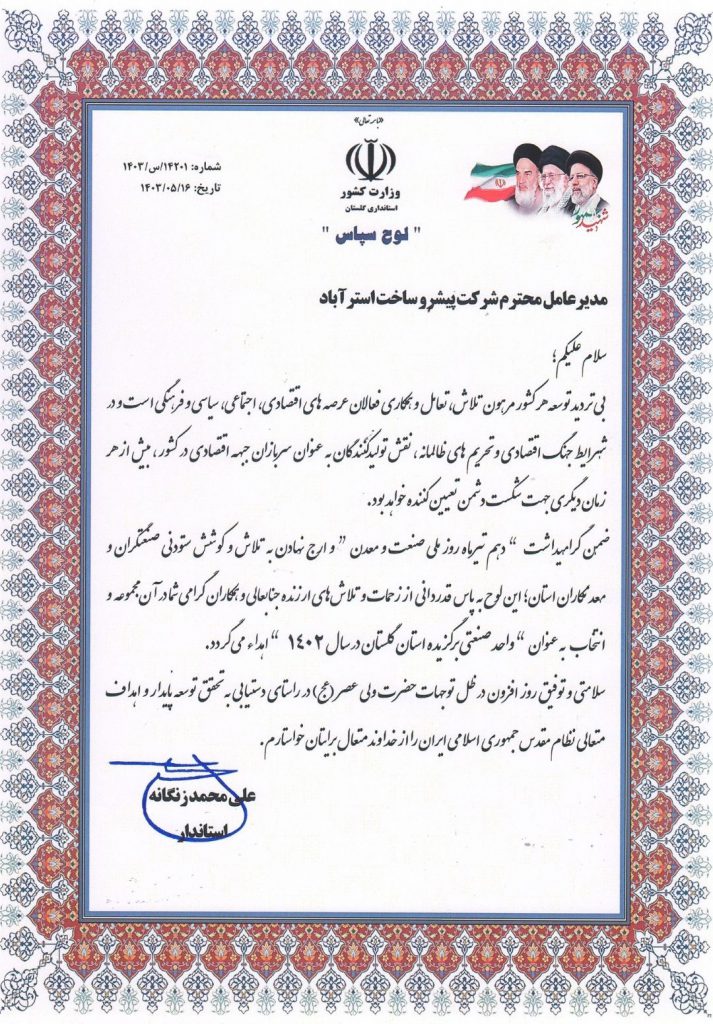 «باسمه تعالی»
شماره: ۱۴۲۰۱/س/۱۴۰۳
تاریخ: ۱۴۰۳/۰۵/۱۶
وزارت کشور
استانداری گلستان
" لوح سپاس "
شهید جمهور
مدیر عامل محترم شرکت پیشرو ساخت استرآباد
سلام علیکم؛
بی تردید توسعه هر کشور مرهون تلاش، تعامل و همکاری فعالان عرصه های اقتصادی، اجتماعی، سیاسی و فرهنگی است و در
شرایط جنگ اقتصادی و تحریم های ظالمانه، نقش تولیدکنندگان به عنوان سربازان جبهه اقتصادی در کشور، بیش از هر
زمان دیگری جهت شکست دشمن تعیین کننده خواهد بود.
ضمن گرامیداشت “ دهم تیرماه روز ملی صنعت و معدن ” و ارج نهادن به تلاش و کوشش ستودنی صنعتگران و
معدنکاران استان؛ این لوح به پاس قدردانی از زحمات و تلاش های ارزنده جنابعالی و همکاران گرامی شما در آن مجموعه و
انتخاب به عنوان “ واحد صنعتی برگزیده استان گلستان در سال ۱۴۰۲ “ اهداء می گردد.
سلامتی و توفیق روز افزون در ظل توجهات حضرت ولی عصر (عج) در راستای دستیابی به تحقق توسعه پایدار و اهداف
متعالی نظام مقدس جمهوری اسلامی ایران را از خداوند متعال برایتان خواستارم.
علی محمد زنگانه
استاندار